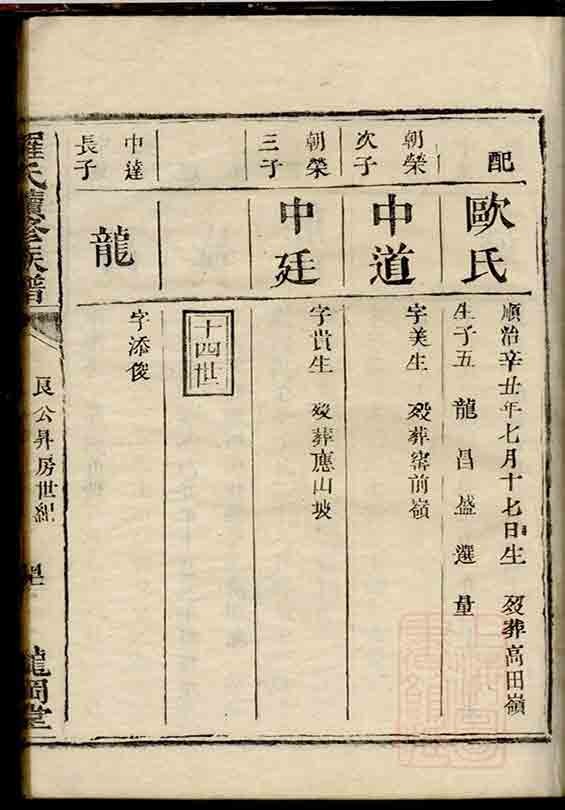 配
歐氏
順治辛丑年七月十七日生 歿葬高田嶺
生子五 龍 昌 盛 選 量
朝榮
次子
中道
字美生 歿葬窑前嶺
朝榮
三子
中廷
字貴生 歿葬應山坡
十四世
中達
長子
龍
字添俊
羅氏續修族譜
良公昇房世紀
龍岡堂